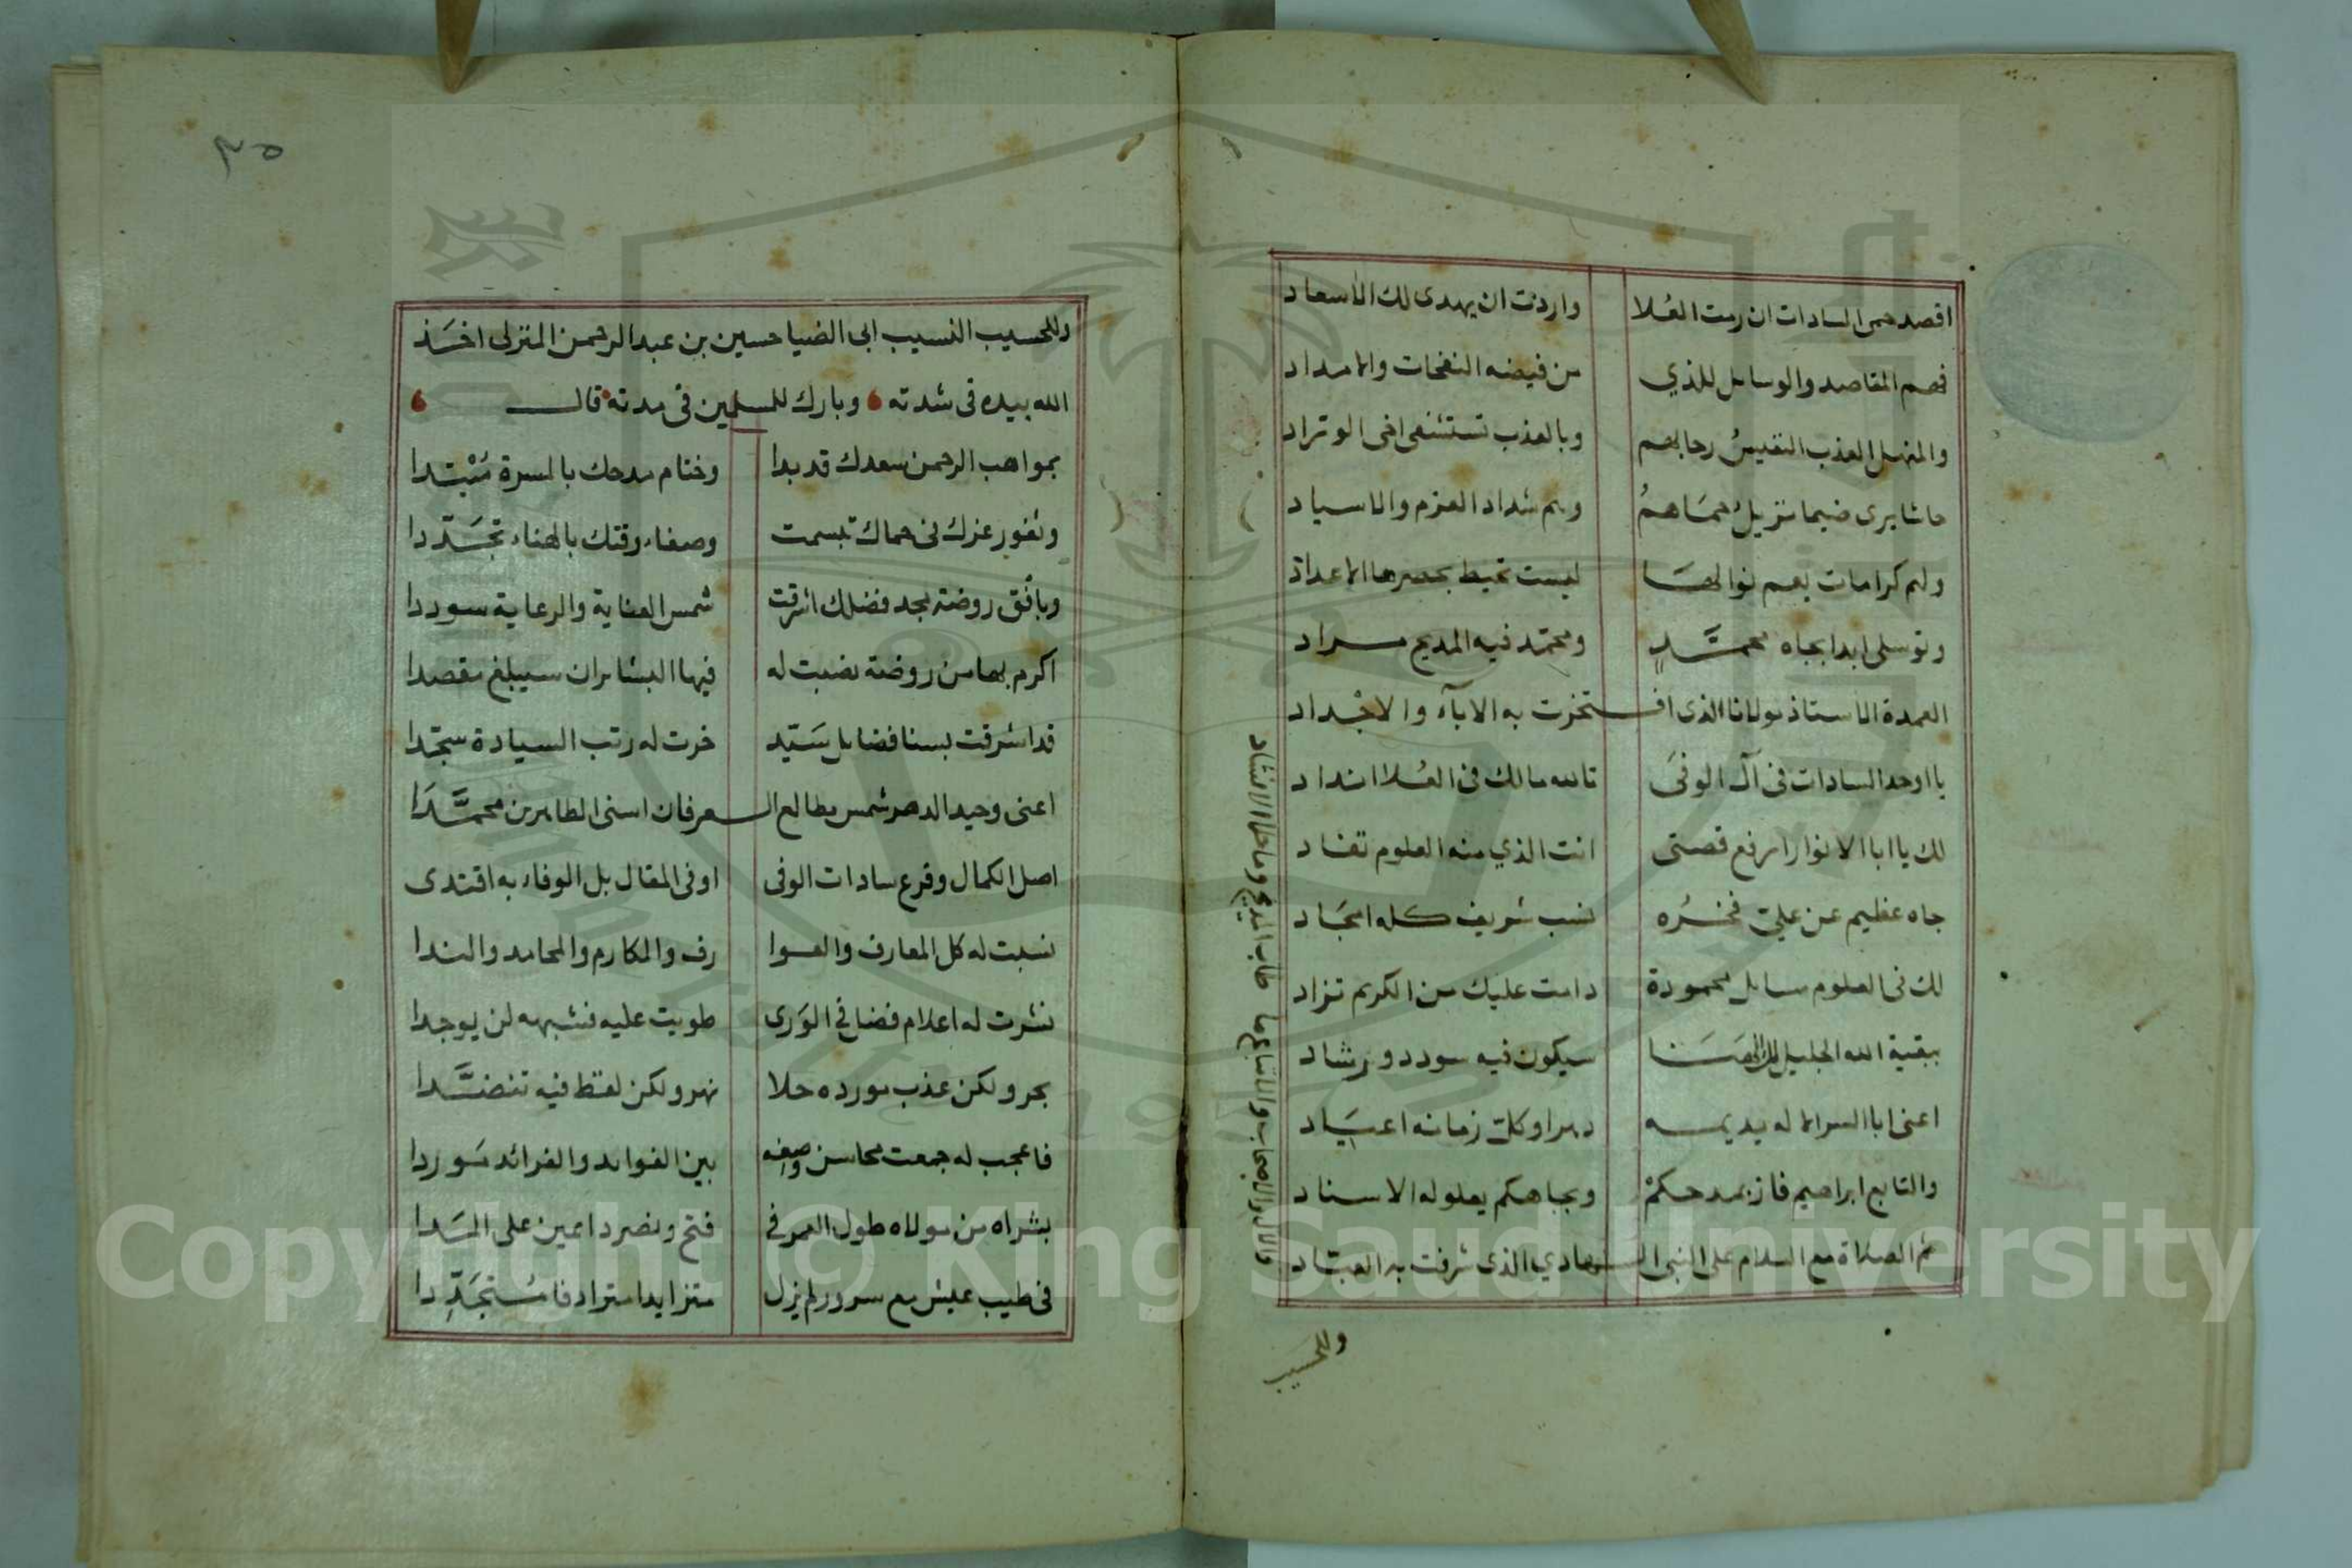 اقصد حمى السادات ان رمت العُلا وارذت ان يهدى لك الاسعاد
فهم المقاصد والوسايل للذي من فيضه النفحات والامداد
والمنهل العذب النفيس رحابهم وبالعذب تستشفى اخى الوتراد
حاشا يرى ضيما نزيل حماهمُ وهم شداد العزم والاسياد
ولهم كرامات يعم نوالها ليست تحيط بحصرها الاعداد
وتوسلى ابدا بجاه محمدٍ ومحمد فيه المديح مراد
العمدة الاستاذ مولانا الذى افتخرت به الاباء والاجداد
يا اوحد السادات فى آل الوفى تالله مالك فى العُلا انداد
لك يا ابا الانوار ارفع قصتى انت الذي منه العلوم تفاد
جاه عظيم عن عليّ فخرُه نسب شريف كله امجاد
لك فى العلوم مسايل محمودة دامت عليك من الكريم تزاد
ببقية الله الجليل لك الهنا سيكون فيه سودد ورشاد
اعنى ابا السر الاله يديمه دهرا وكلّ زمانه اعياد
والتابع ابراهيم فاز بمدحكم وبجاهكم يعلو له الاسناد
ثم الصلاة مع السلام على النبى الهادي الذى شرفت به العباد
والال والاصحاب والاتباع ما طاب المديح وما حلا الانشاد
وللحسيب
٣٥
وللحسيب النسيب ابى الضيا حسين بن عبد الرحمن المنزلى اخذ
الله بيده فى شدته وبارك للمسلمين فى مدته قال
بمواهب الرحمن سعدك قد بدا وختام مدحك بالمسرة مُبْتدا
وثغور عزك فى حماك تبسمت وصفاء وقتك بالهناء تجدّدا
وبافق روضة مجد فضلك اشرقت شمس العناية والرعاية سوددا
اكرم بها من روضة نصبت له فيها البشاير ان سيبلغ مقصدا
قد اشرقت بسنا فضايل سيّد خرت له رتب السيادة سجدا
اعنى وحيد الدهر شمس مطالع العرفان اسنى الطاهرين محمدا
اصل الكمال وفرع سادات الوفى اوفى المقال بل الوفاء به اقتدى
نسبت له كل المعارف والعوا رف والمكارم والمحامد والندا
نشرت له اعلام فضل فى الوَرى طويت عليه فشبهه لن يوجدا
بحر ولكن عذب مورده حلا نهر ولكن لفظ فيه تنضدا
فاعجب له جمعت محاسن وصفه بين الفوايد والفرائد مَوردا
بشراه من مولاه طول العمر فى فتح ونصر دايمين على المَدا
فى طيب عيش مع سرور لم يزل متزايدا مترادفا مُتجدّدا
Copyright © King Saud University